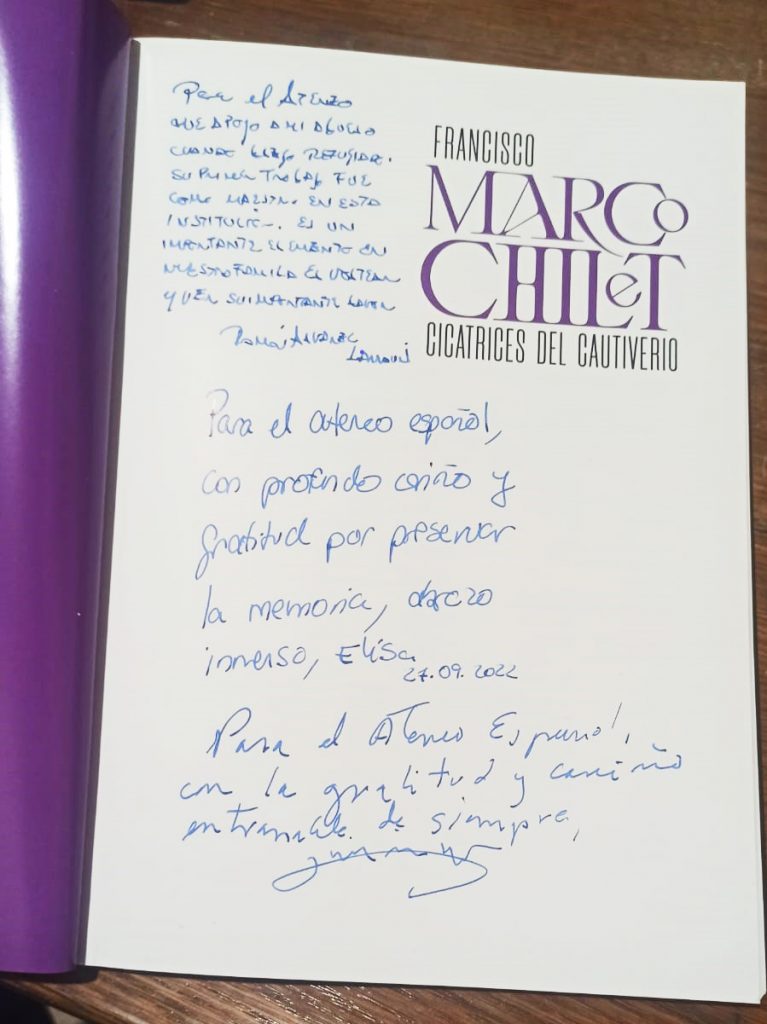 Para el Ateneo
que apoyo a mi abuelo
cuando llego refugiado.
su primer trabajo fue
como maestro en esta
institución. es un
importante elemento en
nuestra familia el voltear
y ver su importante labor
FRANCISCO
MARCO
CHILET
CICATRICES DEL CAUTIVERIO
Para el ateneo español,
con profundo cariño y
gratitud por preservar
la memoria, abrazo
inmenso, Elisa
27.09.2022
Para el Ateneo Español,
con la gratitud y cariño
entrañable de siempre,